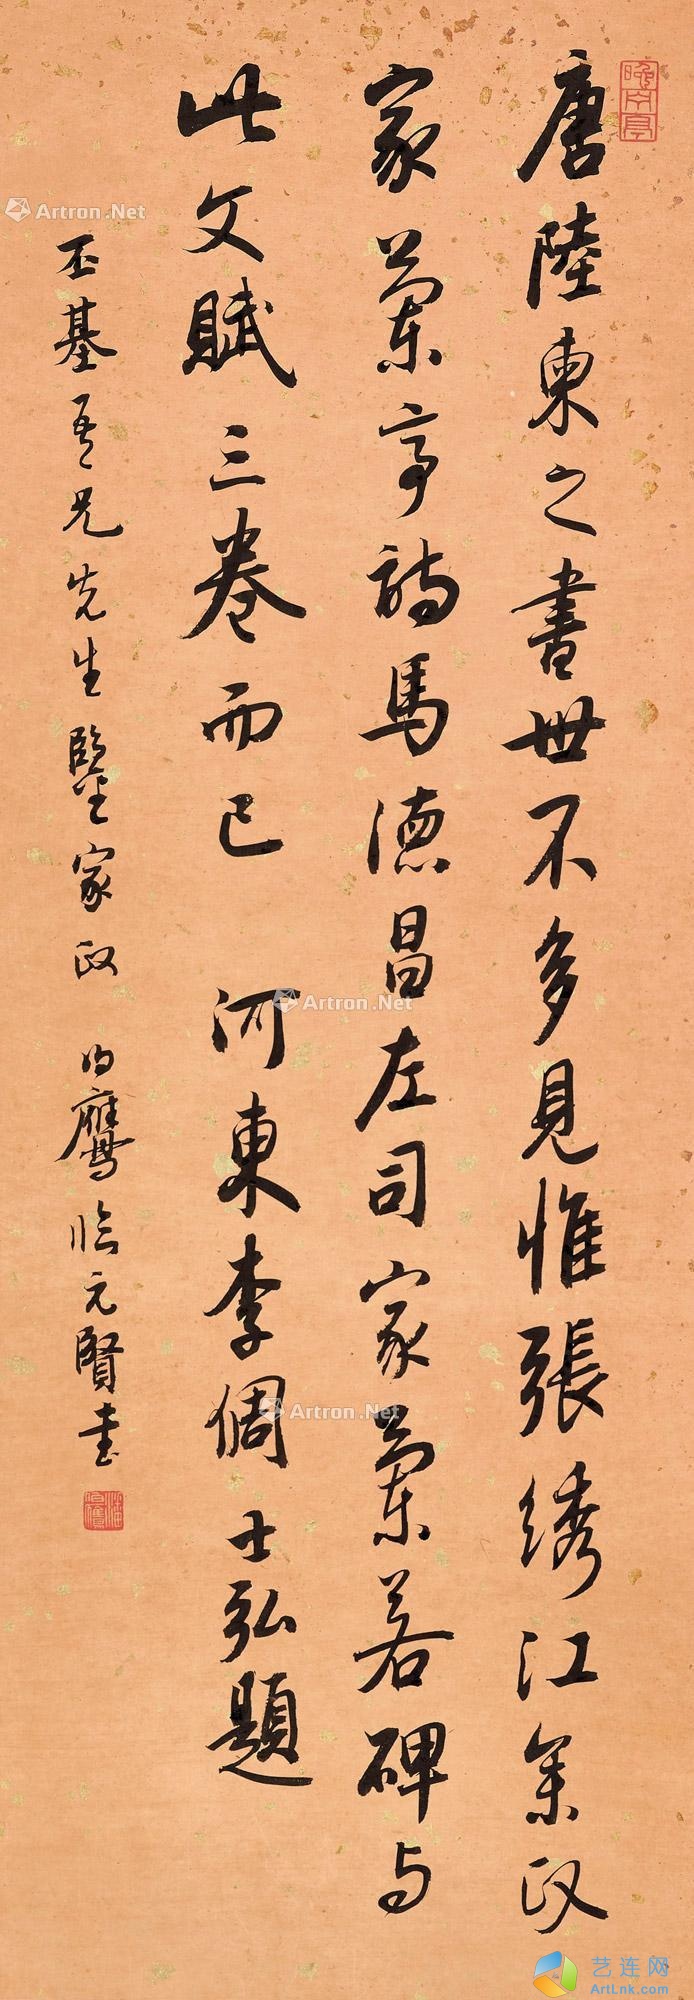 唐陸柬之書世不多見惟張綉江參政
家蘭亭詩馬德昌左司家蘭若碑与
此文賦三卷而已 河東李倜士弘題
丕基吾兄先生鑒家政 伯鷹臨元賢書
晚晴亭
潘伯鷹
Artron.Net
Artron.Net
Artron.Net
艺连网
ArtLnk.com